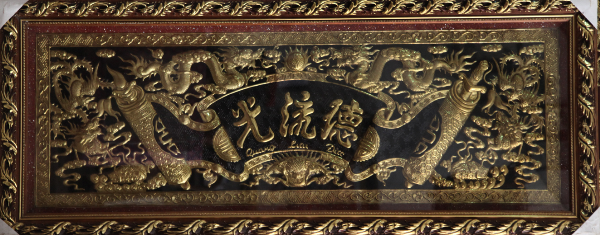 德流光
Quang Lưu Đức